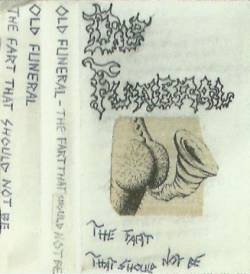 THE FART THAT SHOULD NOT BE
OLD FUNERAL
OLD FUNERAL - THE FART THAT SHOULD NOT BE
OLD
FUNERAL
THE FART
THAT SHOULD NOT BE